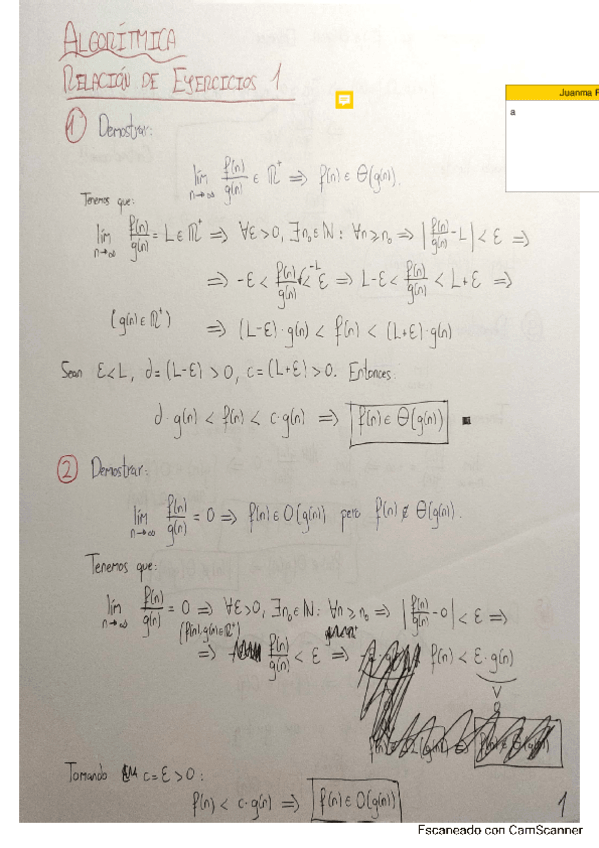 ALGORÍTMICA
RELACIÓN DE EJERCICIOS 1
Juanma
a
1) Demostrar:
lím n→∞ f(n)/g(n) ∈ ℝ⁺ ⇒ f(n) ∈ Θ(g(n)).
Tenemos que:
lím n→∞ f(n)/g(n) = L ∈ ℝ⁺ ⇒ ∀ε>0, ∃n₀∈ℕ: ∀n≥n₀ ⇒ |f(n)/g(n) - L| < ε ⇒
⇒ -ε < f(n)/g(n) -L < ε ⇒ L-ε < f(n)/g(n) < L+ε ⇒
(g(n)∈ℝ⁺) ⇒ (L-ε)·g(n) < f(n) < (L+ε)·g(n)
Sean ε<L, d=(L-ε)>0, c=(L+ε)>0. Entonces:
d·g(n) < f(n) < c·g(n) ⇒ f(n)∈Θ(g(n)) ■
2) Demostrar:
lím n→∞ f(n)/g(n) = 0 ⇒ f(n)∈O(g(n)) pero f(n)∉Θ(g(n)).
Tenemos que:
lím n→∞ f(n)/g(n) = 0 ⇒ ∀ε>0, ∃n₀∈ℕ: ∀n≥n₀ ⇒ |f(n)/g(n) - 0| < ε ⇒
(f(n),g(n)∈ℝ⁺)
⇒ f(n)/g(n) < ε ⇒ f(n) < ε·g(n)
Tomando c=ε>0:
f(n) < c·g(n) ⇒ f(n)∈O(g(n))
1
Escaneado con CamScanner